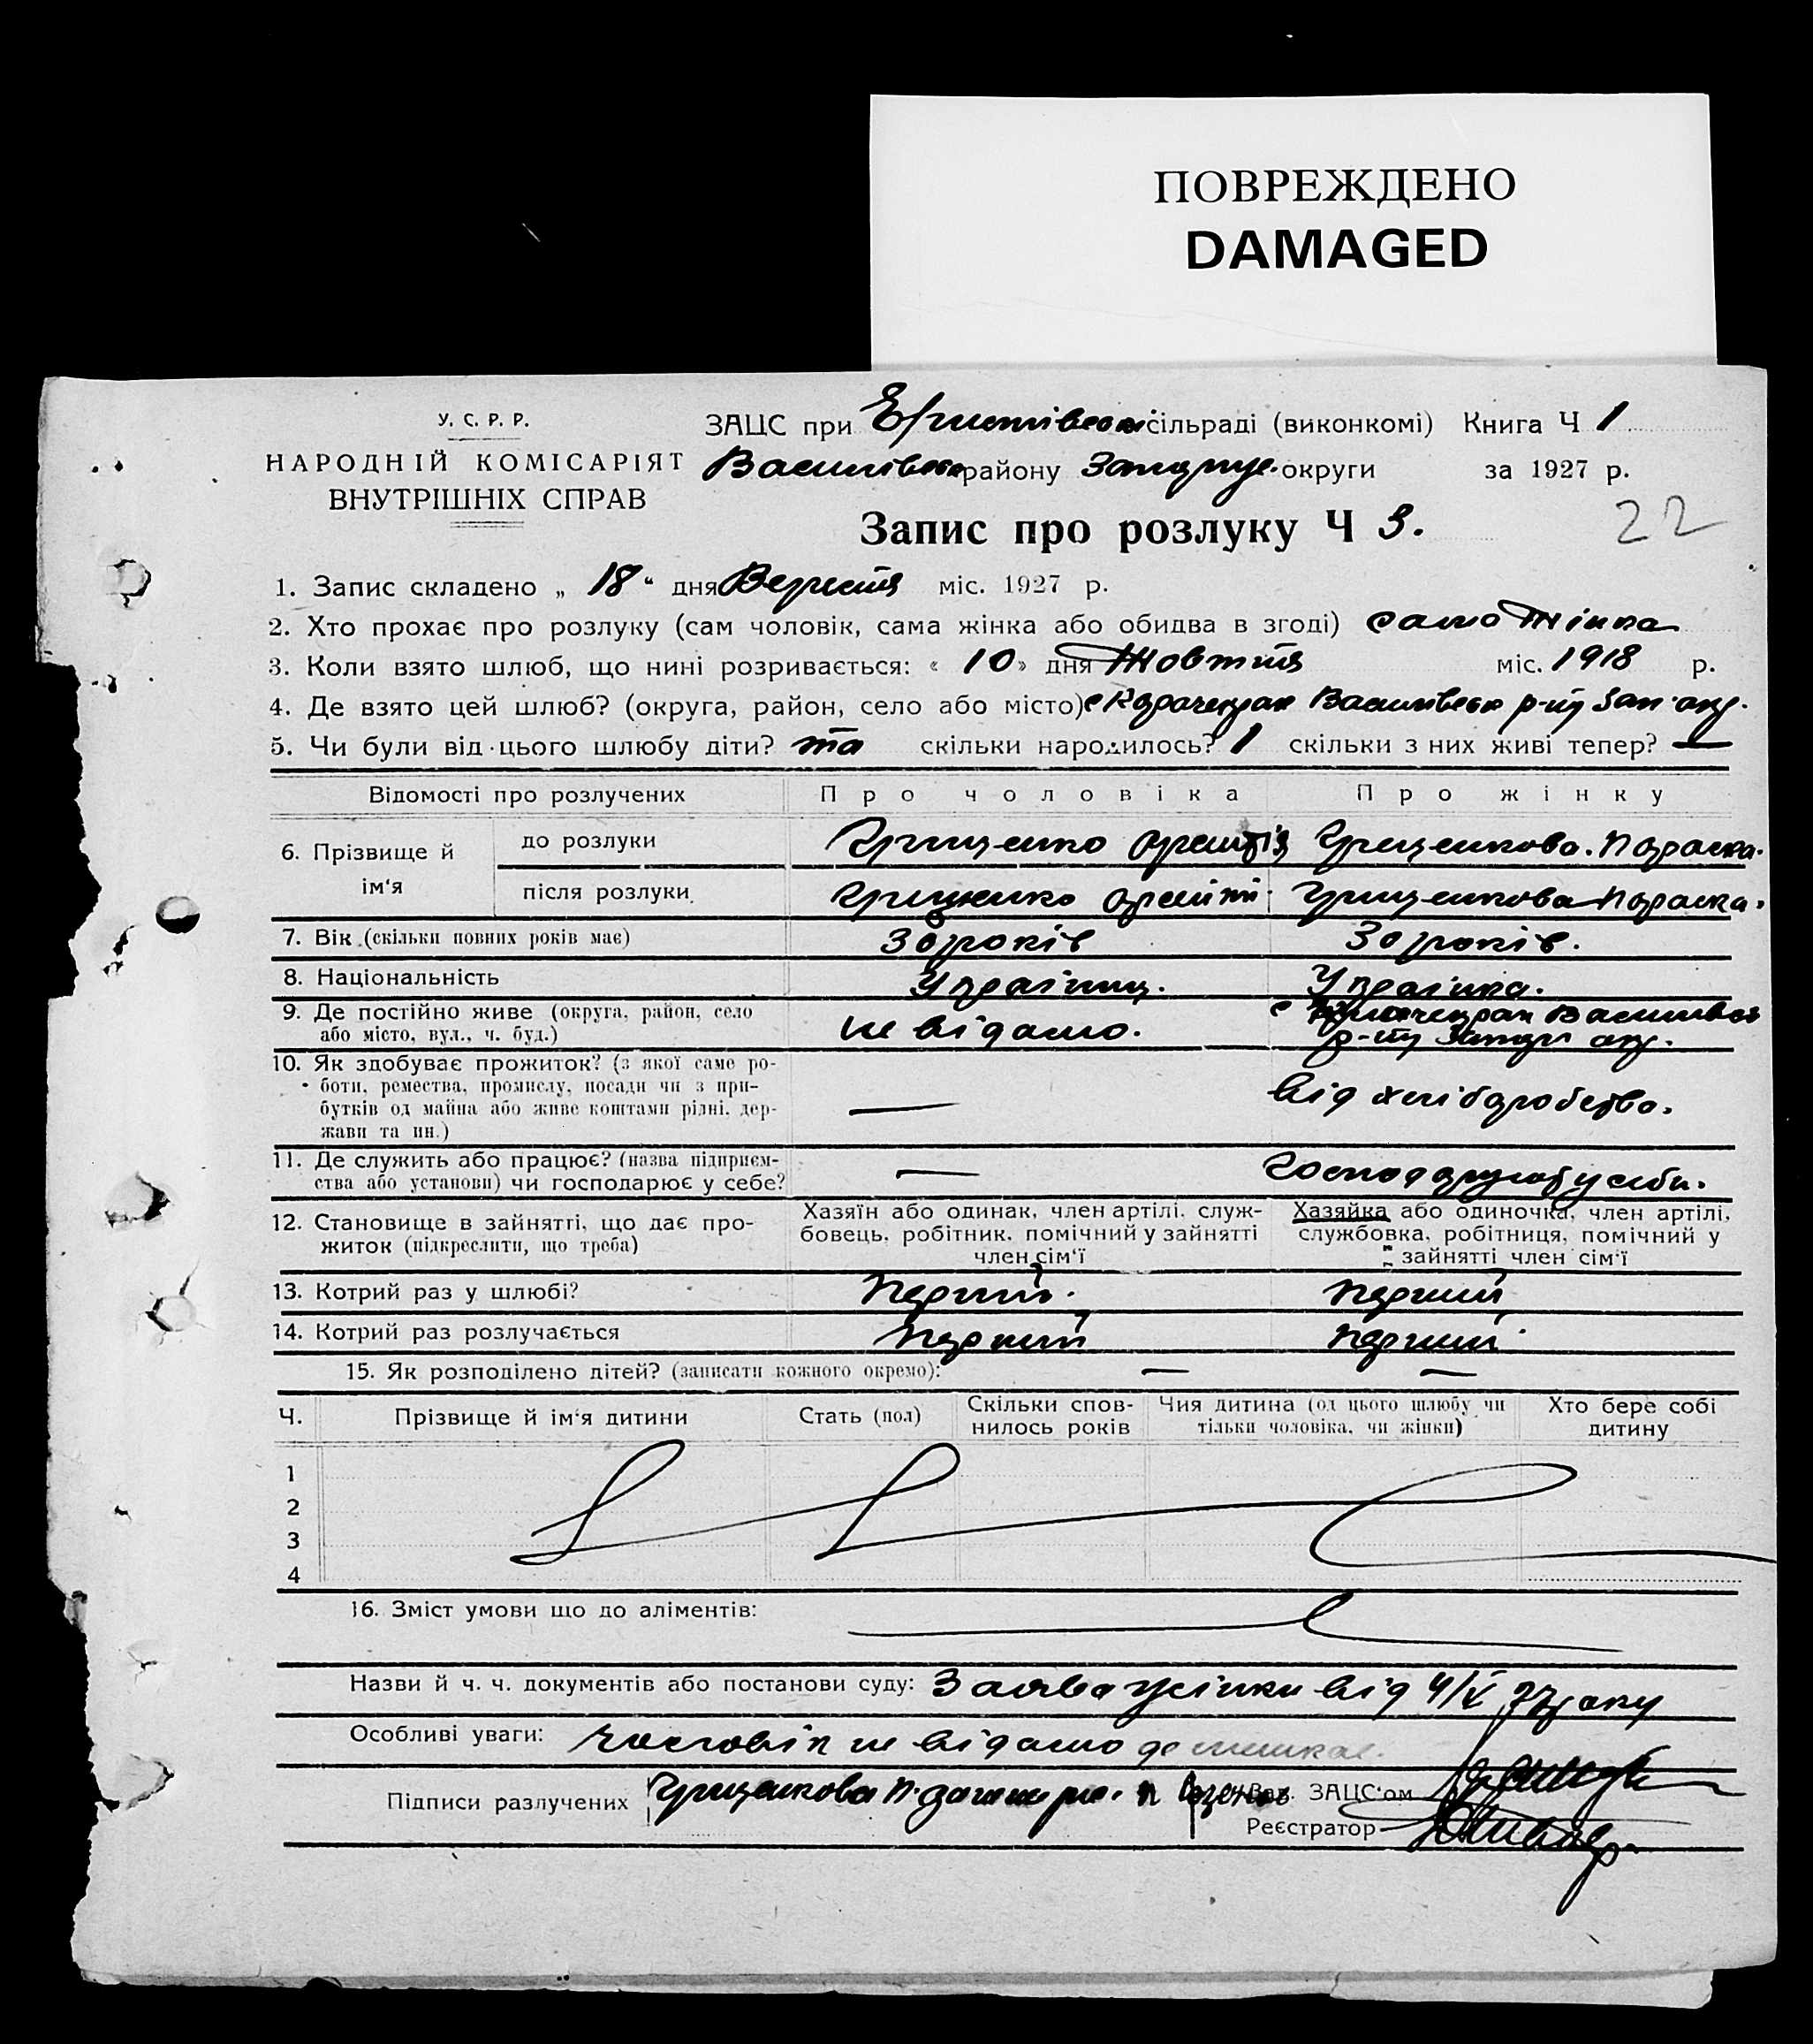 ПОВРЕЖДЕНО
DAMAGED
У. С. Р. Р.
НАРОДНІЙ КОМІСАРІЯТ
ВНУТРІШНІХ СПРАВ
ЗАЦС при сільраді (виконкомі) Книга Ч 1
Василівськ району Запоріж. округи за 1927 р.
Запис про розлуку Ч 3.
22
1. Запис складено „ 18 “ дня Вересня міс. 1927 р.
2. Хто прохає про розлуку (сам чоловік, сама жінка або обидва в згоді) сама жінка
3. Коли взято шлюб, що нині розривається: « 10 » дня Жовтня міс. 1918 р.
4. Де взято цей шлюб? (округа, район, село або місто) с Карачекрак Василівськ р-ну Зап. окр.
5. Чи були від цього шлюбу діти? та скільки народилось? 1 скільки з них живі тепер? —
Відомості про розлучених Про чоловіка Про жінку
6. Прізвище й ім‘я до розлуки Грищенко Грищенкова. Параска.
після розлуки Грищенко Грищенкова Параска.
7. Вік (скільки повних років має) 30 років 30 років.
8. Національність Українец. Українка.
9. Де постійно живе (округа, район, село або місто, вул., ч. буд.) не відамо. с Карачекрак Василівськ р-ну Запор окр.
10. Як здобуває прожиток? (з якої саме роботи, ремества, промислу, посади чи з прибутків од майна або живе коштами рідні, держави та ин.) — від хліборобства.
11. Де служить або працює? (назва підприємства або установи) чи господарює у себе? — Господарює у себи.
12. Становище в зайнятті, що дає прожиток (підкреслити, що треба)
Хазяїн або одинак, член артілі, службовець, робітник, помічний у зайнятті член сім‘ї
Хазяйка або одиночка, член артілі, службовка, робітниця, помічний у зайнятті член сім‘ї
13. Котрий раз у шлюбі? Перший. перший
14. Котрий раз розлучається перший перший.
15. Як розподілено дітей? (записати кожного окремо): — —
Ч. Прізвище й ім‘я дитини Стать (пол) Скільки сповнилось років Чия дитина (од цього шлюбу чи тільки чоловіка, чи жінки) Хто бере собі дитину
1
2
3
4
16. Зміст умови що до аліментів:
Назви й ч. ч. документів або постанови суду: Заява жінки від 4/X 27 року
Особливі уваги: чоловік не відамо де мешкає.
Підписи разлучених Грищенкова П. Зав. ЗАЦС‘ом
Реєстратор